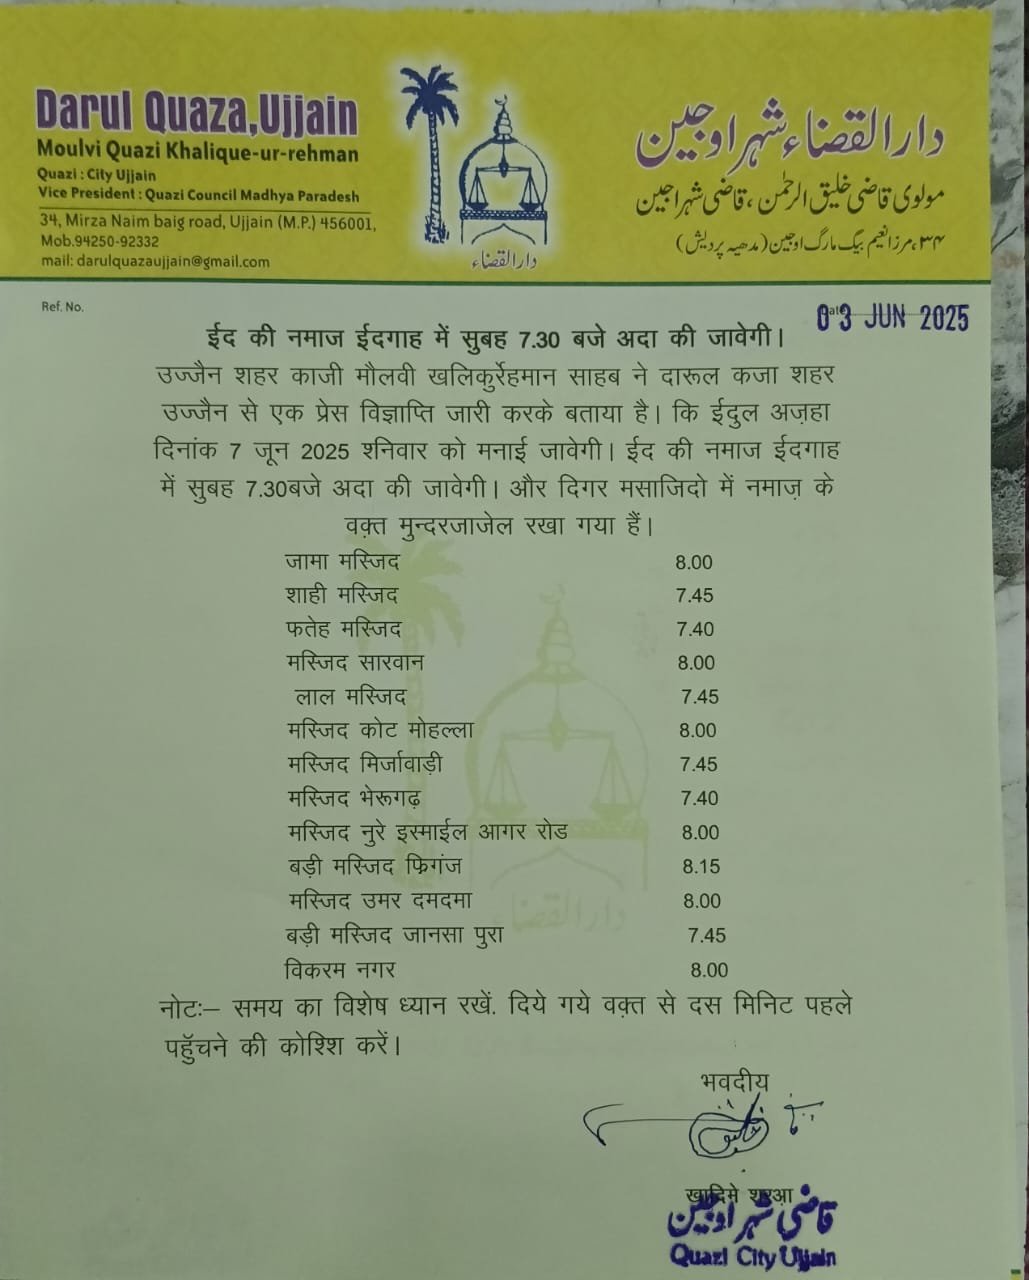 Darul Quaza,Ujjain
Moulvi Quazi Khalique-ur-rehman
Quazi : City Ujjain
Vice President : Quazi Council Madhya Paradesh
34, Mirza Naim baig road, Ujjain (M.P.) 456001,
Mob.94250-92332
mail: darulquazaujjain@gmail.com
دارالقضاء
دارالقضاء شہر اوجین
مولوی قاضی خلیق الرحمٰن ، قاضی شہر اجین
۳۴، مرزا نعیم بیگ مارگ اوجین (مدھیہ پردیش)
Ref. No.
Date
03 JUN 2025
ईद की नमाज ईदगाह में सुबह 7.30 बजे अदा की जावेगी।
उज्जैन शहर काजी मौलवी खलिकुर्रेहमान साहब ने दारूल कजा शहर
उज्जैन से एक प्रेस विज्ञाप्ति जारी करके बताया है। कि ईदुल अज़हा
दिनांक 7 जून 2025 शनिवार को मनाई जावेगी। ईद की नमाज ईदगाह
में सुबह 7.30बजे अदा की जावेगी। और दिगर मसाजिदो में नमाज़ के
वक़्त मुन्दरजाजेल रखा गया हैं।
जामा मस्जिद 8.00
शाही मस्जिद 7.45
फतेह मस्जिद 7.40
मस्जिद सारवान 8.00
लाल मस्जिद 7.45
मस्जिद कोट मोहल्ला 8.00
मस्जिद मिर्जावाड़ी 7.45
मस्जिद भेरूगढ़ 7.40
मस्जिद नुरे इस्माईल आगर रोड 8.00
बड़ी मस्जिद फ्रिगंज 8.15
मस्जिद उमर दमदमा 8.00
बड़ी मस्जिद जानसा पुरा 7.45
विकरम नगर 8.00
दारالقضاء
नोटः– समय का विशेष ध्यान रखें. दिये गये वक़्त से दस मिनिट पहले
पहुँचने की कोश्शि करें।
भवदीय
खादिमे शरआ
قاضی شہر اوجین
Quazi City Ujjain